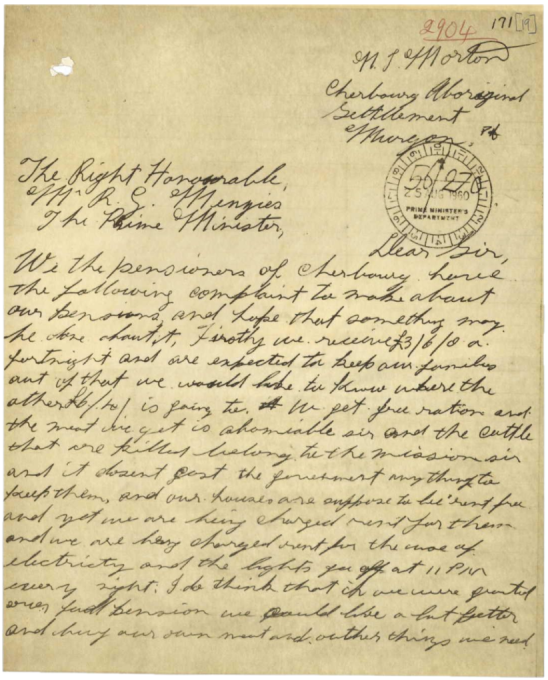 2904 171 [19]
N. J. Morton
Cherbourg Aboriginal
Settlement
Murgon,
The Right Honourable,
Mr R. G. Menzies
The Prime Minister,
25 AUG 1960
PRIME MINISTER'S
DEPARTMENT
Dear Sir,
We the pensioners of Cherbourg have
the following complaint to make about
our pensions, and hope that something may
be done about it, Firstly we receive £3/6/0 a
fortnight and are expected to keep our families
out of that we would like to know where the
other is going to. We get free ration and
the meat we get is abomiable sir and the cattle
that are killed belong to the mission sir
and it dosent cost the goverment anything to
keep them, and our houses are suppose to be rent free
and yet we are being charged rent for them
and we are being charged rent for the use of
electricity and the lights go off at 11 PM
every night. I do think that if we were granted
our full pension we could live a lot better
and buy our own meat and other things we need.